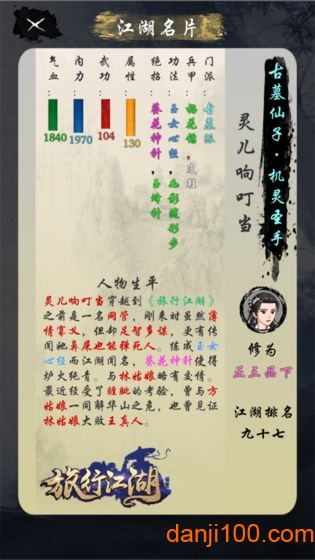 江湖名片
古墓仙子·机灵圣手
灵儿响叮当
门派：古墓派
兵甲：梅花镖，皮鞋
功法：玉女心经，
绝招：葵花神针，玉蜂针
属性：130
武功：104
内力：1970
气血：1840
人物生平
灵儿响叮当穿越到《旅行江湖》
之前是一名网管，刚来时虽然薄
情寡义，但却足智多谋，更有传
闻她鼻屎也能弹死人。练成玉女
心经而江湖闻名，葵花神针使得
炉火纯青。与林姑娘略有交情。
最近经受了的考验，曾与方
姑娘一同解华山之危，也曾见证
林姑娘大败王真人。
修为
正三品下
江湖排名
九十七
旅行江湖
danji100.com